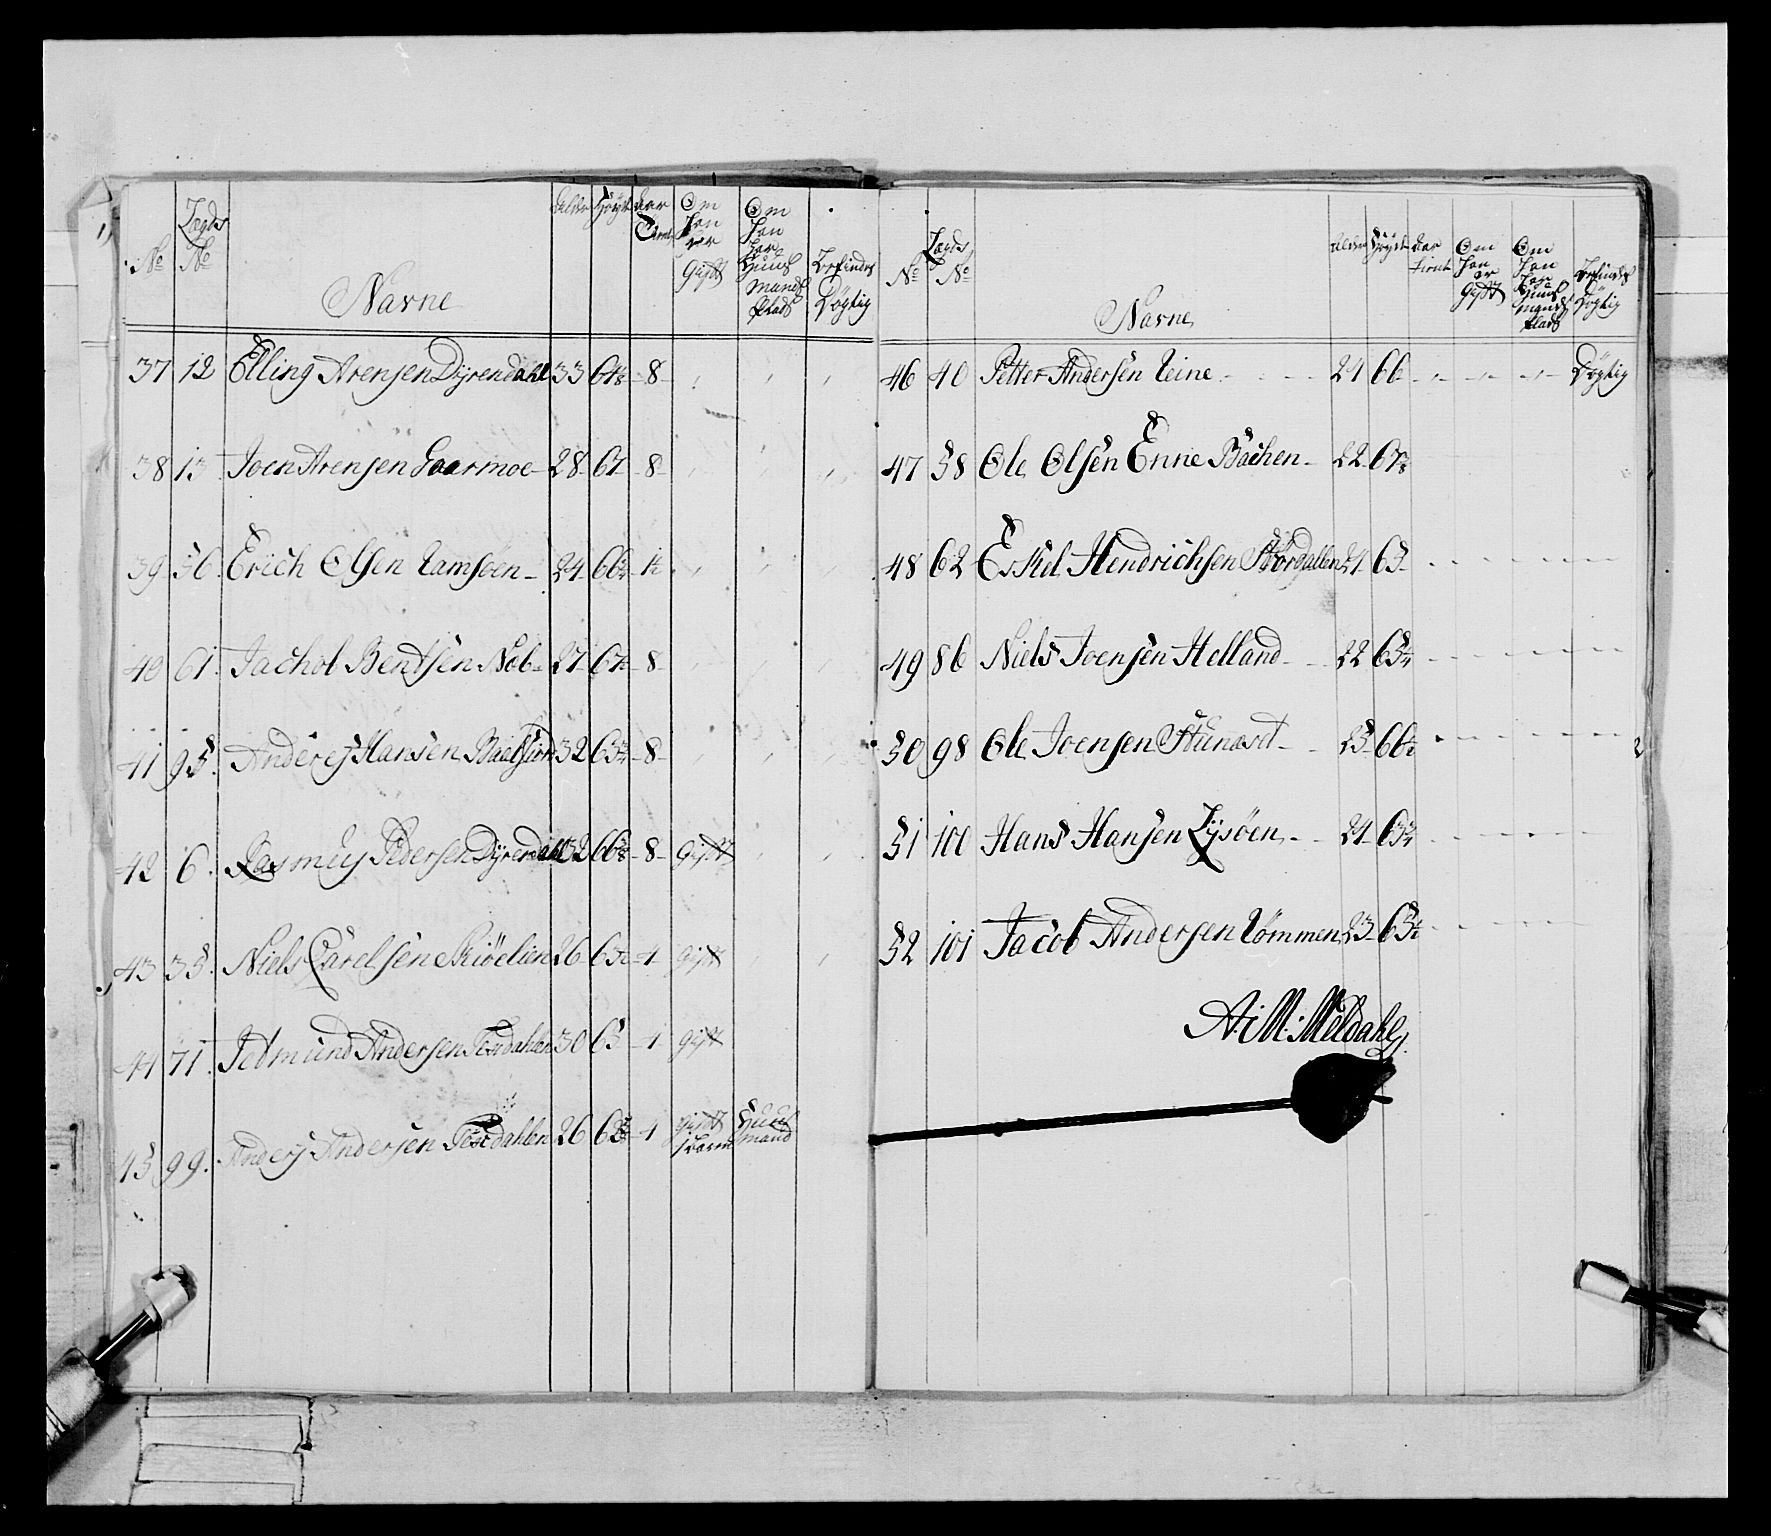 No Lægds No Navne Alder Høyde har tient Om han er Gift Om han har Huus Mands Plads befindes Døgtig
37 12 Elling Arensen Dyrendahl 33 64 8
38 13 Joen Arensen Gaarmoe 28 67 8
39 36 Erich Olsen Lamsøen 24 66
40 61 Jachob Bentsen Nøb 27 67 8
41 95 Anders Hansen 32 65 8
42 6 Rasmus Pedersen Dyrendahl 32 66 8 Gift
43 35 Niels Carelsen Kiølien 26 65 4 gift
44 71 Andersen Tesdahlen 30 63 4 gift
45 99 Anders Andersen Tesdahlen 26 62 4 Gift Huus mand
No Lægds No Navne Alder Høyde har tient Om han er Gift Om han har Huus Mands Plads befindes Døgtig
46 40 Petter Andersen Leine 24 66 Døgtig
47 58 Ole Olsen Enne Bachen 22 67
48 62 Eskel Hendrichsen 21 63
49 86 Niels Joensen Helland 22 65
50 98 Ole Joensen 23 66
51 100 Hans Hansen Lysøen 24 65
52 101 Jacob Andersen Lømmen 23 65
A: M: Meldahl